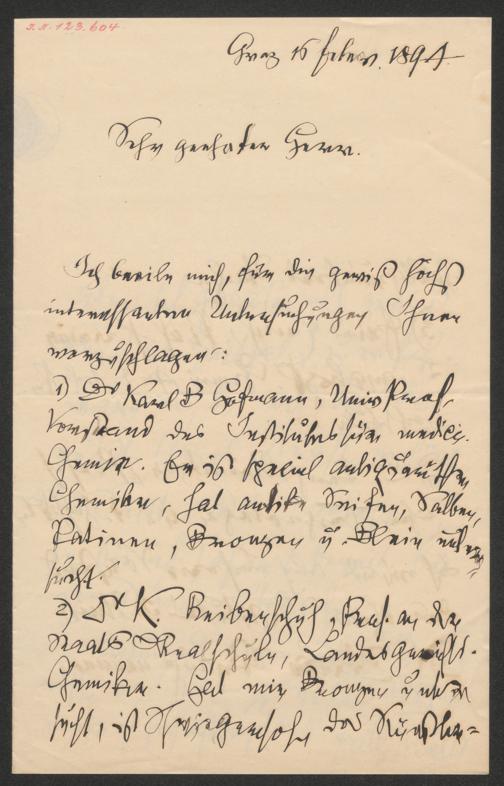 I.N. 123.604
Graz 16 Febr. 1894.
Sehr geehrter Herr.
Ich beeile mich, für die gewiß höchst
interessanten Untersuchungen Ihnen
vorzuschlagen:
1) Dr Karl B Hofmann, Univ Prof,
Vorstand des Institutes für medic.
Chemie. Er ist speciel antiquarischer
Chemiker, hat antike Seifen, Salben,
Patinen, Bronzen u. Blein unter-
sucht.
2) Dr K. Reibenschuh, Prof. an der
Staats Realschule, Landesgerichts-
Chemiker. Hat mir Bronzen unter
sucht, ist Schwiegersohn des